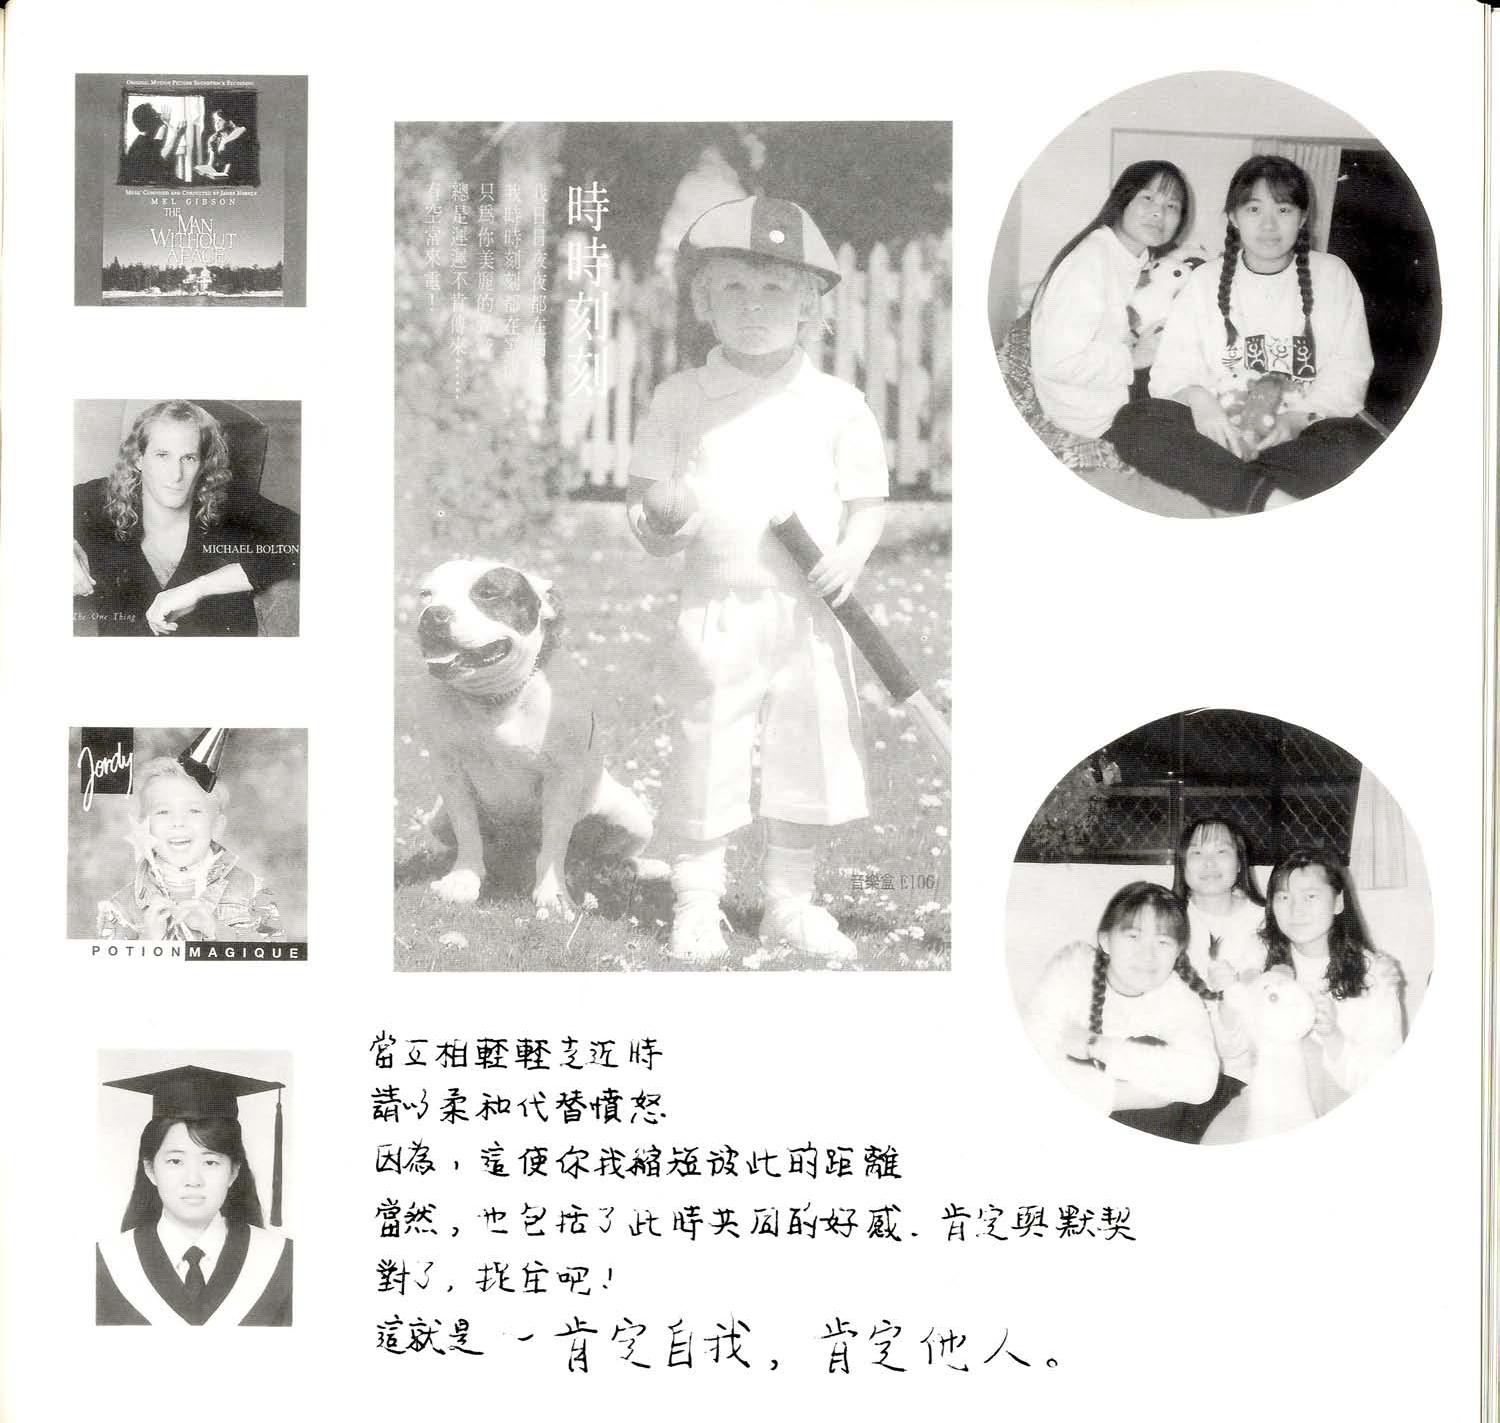 ORIGINAL MOTION PICTURE SOUNDTRACK RECORDING
MUSIC COMPOSED AND CONDUCTED BY JAMES HORNER
MEL GIBSON
THE
MAN
WITHOUT
A FACE
MICHAEL BOLTON
The One Thing
Jordy
POTION MAGIQUE
時時刻刻
我日日夜夜都在
我時時刻刻都在
只為你美麗的
總是遲遲不肯傳來……
有空常來電!
音樂盒 E106
當互相輕輕走近時
請以柔和代替憤怒
因為，這使你我縮短彼此的距離
當然，也包括了此時共同的好感．肯定與默契
對了，捉住吧!
這就是－肯定自我，肯定他人。